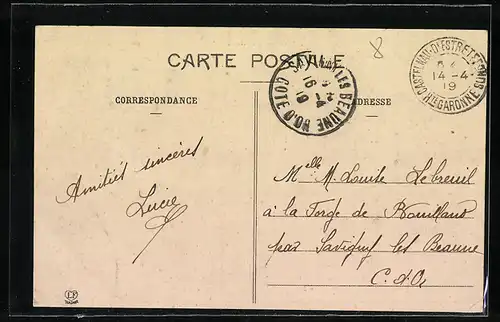 CARTE POSTALE
8
CASTELNAU-D'ESTRETEFONDS
14-4
19
Hte GARONNE
SAVIGNY-LES-BEAUNE
16
19
COTE D'OR
CORRESPONDANCE
ADRESSE
Amitiés sincères
Lucie
Melle M. Louise Lebreuil
à la Forge de Bouilland
par Savigny les Beaune
C. d'Or